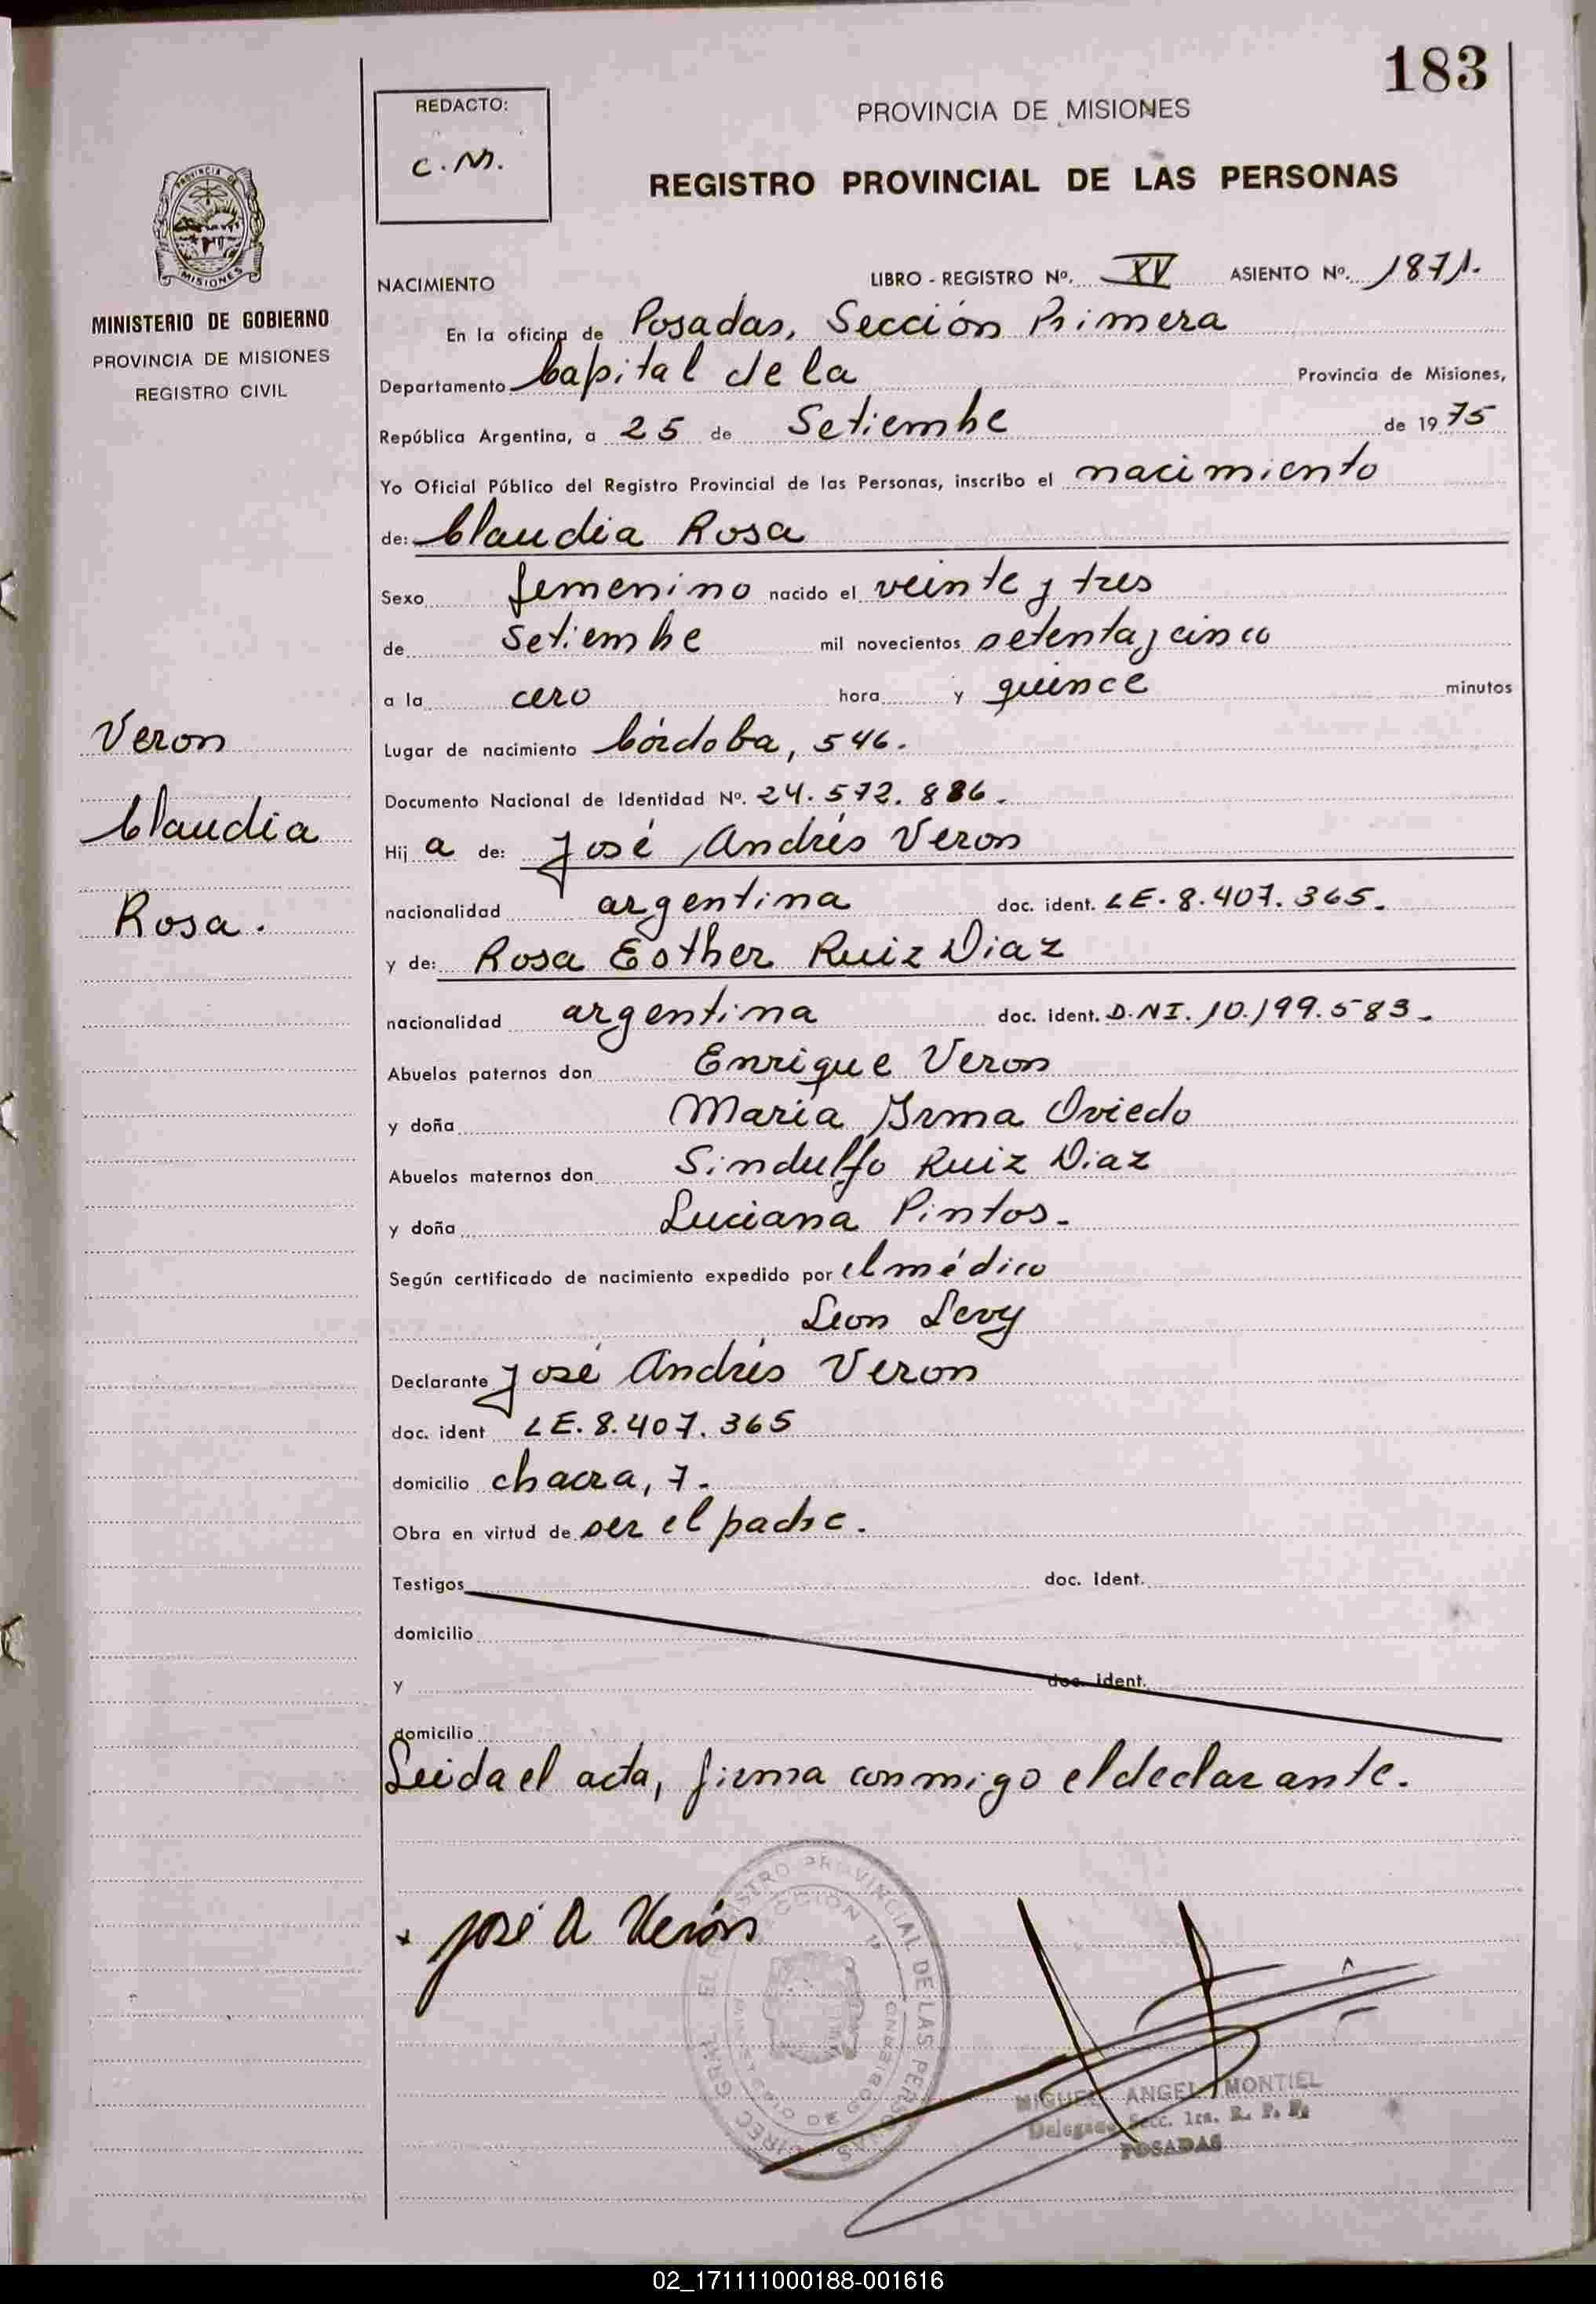 183
REDACTO:
C. M.
PROVINCIA DE MISIONES
REGISTRO PROVINCIAL DE LAS PERSONAS
PROVINCIA DE
MISIONES
MINISTERIO DE GOBIERNO
PROVINCIA DE MISIONES
REGISTRO CIVIL
NACIMIENTO LIBRO - REGISTRO Nº. XV ASIENTO Nº. 1871.
En la oficina de Posadas, Sección Primera
Departamento Capital de la Provincia de Misiones,
República Argentina, a 25 de Setiembre de 1975
Yo Oficial Público del Registro Provincial de las Personas, inscribo el nacimiento
de: Claudia Rosa
Sexo femenino nacido el veinte y tres
de Setiembre mil novecientos setenta y cinco
a la cero hora y quince minutos
Veron
Lugar de nacimiento Córdoba, 546.
Documento Nacional de Identidad Nº. 24.572.886.
Claudia
Hij a de: José Andrés Veron
Rosa.
nacionalidad argentina doc. ident. LE. 8.407.365.
y de: Rosa Esther Ruiz Diaz
nacionalidad argentina doc. ident. D.NI. 10.199.583.
Abuelos paternos don Enrique Veron
y doña Maria Irma Oviedo
Abuelos maternos don Sindulfo Ruiz Diaz
y doña Luciana Pintos.
Según certificado de nacimiento expedido por el médico
Leon Levy
Declarante José Andrés Veron
doc. ident LE. 8.407.365
domicilio chacra, 7.
Obra en virtud de ser el padre.
Testigos doc. Ident.
domicilio
y doc. ident.
domicilio
Leida el acta, firma conmigo el declarante.
José A Verón
DIREC. GRAL. EL REGISTRO PROVINCIAL DE LAS PERSONAS
SECCION 1ª
MINISTERIO DE GOBIERNO
MIGUEL ANGEL MONTIEL
Delegado Secc. 1ra. R. P. P.
POSADAS
02_171111000188-001616